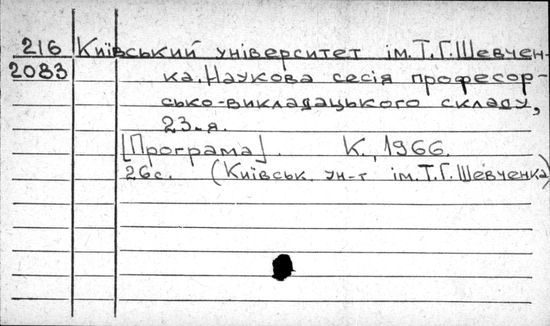 216 Київський університет ім. Т.Г.Шевчен-
2083 ка. Наукова сесія професор-
сько-викладацького складу,
23-я.
[Програма]. К., 1966.
26с. (Київськ. ун-т ім. Т.Г.Шевченка)